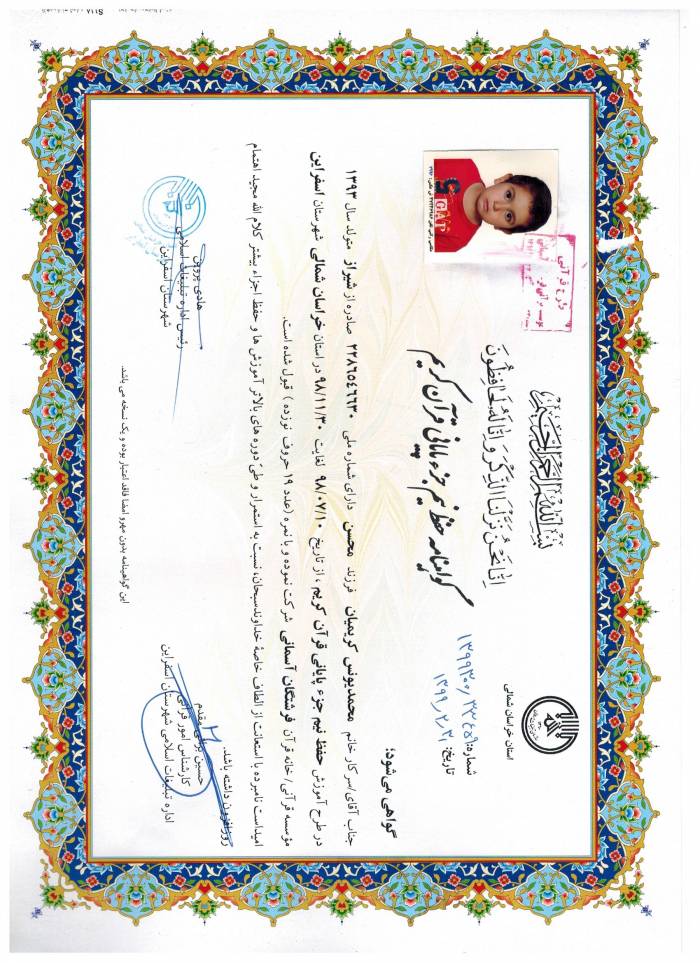 بسم الله الرحمن الرحیم
اِنّا نَحنُ نَزَّلنَا الذِّکرَ وَ اِنّا لَهُ لَحافِظُونَ
گواهینامه حفظ نیم جزء پایانی قرآن کریم
استان خراسان شمالی
شماره:
تاریخ: ۱۳۹۹,۲,۳
گواهی می‌شود:
جناب آقای/سرکار خانم محمدیونس کریمیان فرزند محسن دارای شماره ملی ۲۲۸۶۵۴۶۶۳۰ صادره از شیراز متولد سال ۱۳۹۳
در طرح آموزش حفظ نیم جزء پایانی قرآن کریم، از تاریخ ۹۸/۰۷/۱۰ لغایت ۹۸/۱۱/۳۰ در استان خراسان شمالی شهرستان اسفراین
مؤسسه قرآنی/خانه قرآن فرشتگان آسمانی شرکت نموده و با نمره (عدد ۱۹ حروف نوزده) قبول شده است.
امیداست نامبرده با استعانت از الطاف خاصهٔ خداوندسبحان، نسبت به استمرار و طیّ دوره های بالاتر آموزش ها و حفظ اجزاء بیشتر کلام الله مجید اهتمام
روزافزون داشته باشد.
حسین براتی مقدم
کارشناس امور قرآنی
اداره تبلیغات اسلامی شهرستان اسفراین
هادی پروین
رئیس اداره تبلیغات اسلامی
شهرستان اسفراین
این گواهینامه بدون مهرو امضا فاقد اعتبار بوده و یک نسخه می باشد.
GAP